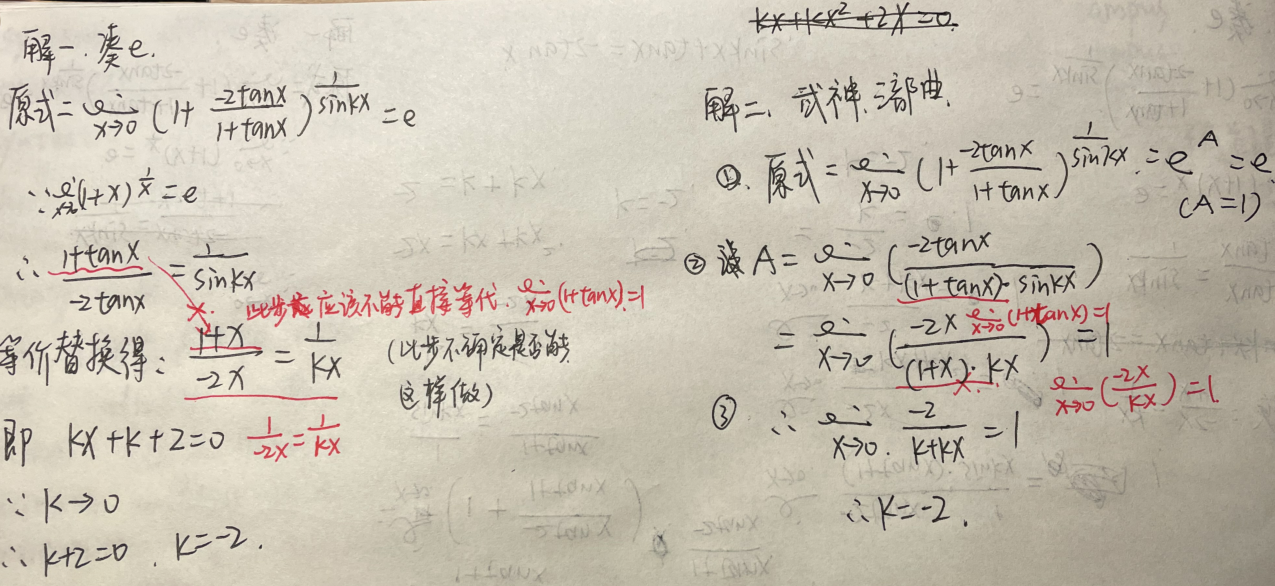 解一. 凑e.
原式=lim x→0 (1+ -2tanx/1+tanx)^(1/sinkx) = e
∵lim x→0 (1+x)^(1/x) = e
∴ 1+tanx/-2tanx = 1/sinkx
×. 此步应该不能直接等代. lim x→0 (1+tanx)=1
等价替换得: 1+x/-2x = 1/kx
(此步不确定是否能
这样做)
即 kx+k+2=0 1/-2x = 1/kx
∵ k→0
∴ k+2=0. k=-2.
kx+kx²+2x=0.
解二、武神三部曲.
①. 原式=lim x→0 (1+ -2tanx/1+tanx)^(1/sinkx) = e^A = e
(A=1)
② 该A=lim x→0 (-2tanx/(1+tanx)·sinkx)
lim x→0 (1+tanx)=1
=lim x→0 (-2x/(1+x)·kx) = 1
×. lim x→0 (-2x/kx)=1.
③ ∴ lim x→0. -2/k+kx = 1
∴k=-2.